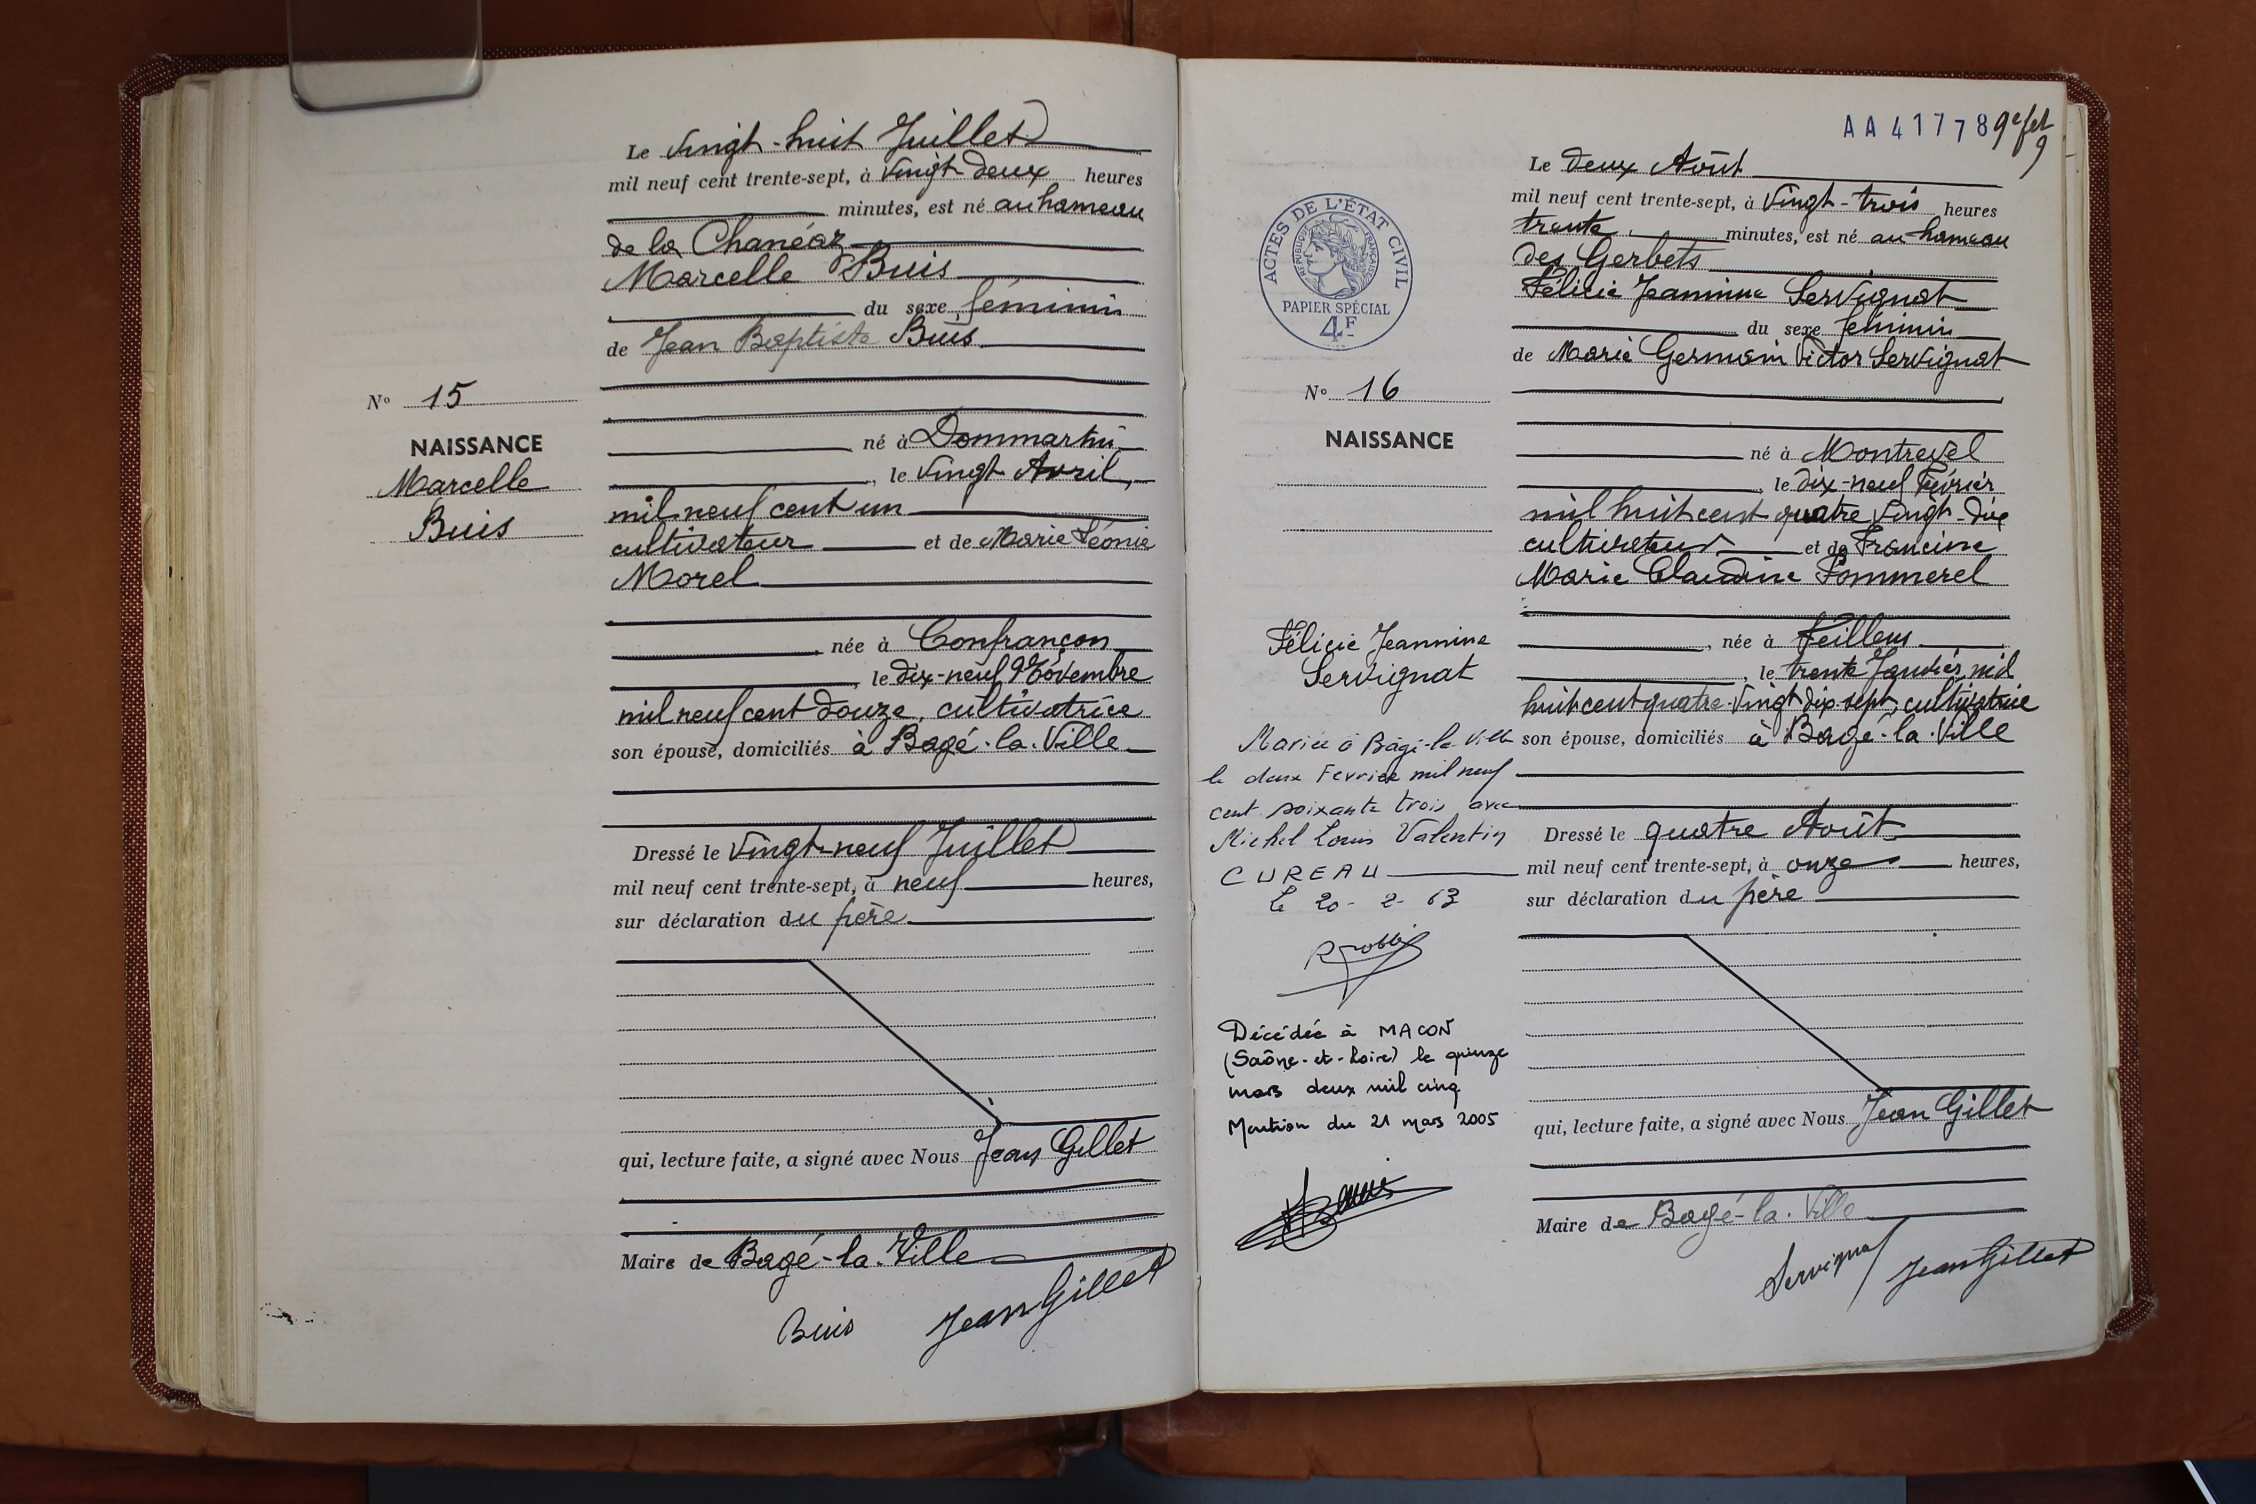 Le vingt-huit Juillet
mil neuf cent trente-sept, à vingt-deux heures
minutes, est né au hameau
de la Chanéaz
Marcelle Buis
du sexe féminin
de Jean Baptiste Buis
né à Dommartin
, le vingt Avril,
mil neuf cent un
cultivateur et de Marie Léonie
Morel
née à Confrançon
, le dix-neuf Novembre
mil neuf cent douze, cultivatrice
son épouse, domiciliés à Bagé-la-Ville
Dressé le vingt-neuf Juillet
mil neuf cent trente-sept, à neuf heures,
sur déclaration du père
qui, lecture faite, a signé avec Nous Jean Gillet
Maire de Bagé-la-Ville
Buis Jean Gillet
No 15
NAISSANCE
Marcelle
Buis
AA41778 9e fet
9
Le deux Août
mil neuf cent trente-sept, à vingt-trois heures
trente minutes, est né au hameau
des Gerbets
Félicie Jeannine Servignat
du sexe féminin
de Marie Germain Victor Servignat
né à Montrevel
, le dix-neuf Février
mil huit cent quatre vingt-dix
cultivateur et de Francine
Marie Claudine Pommerel
, née à Feillens
, le trente Janvier mil
huit cent quatre-vingt dix-sept, cultivatrice
son épouse, domiciliés à Bagé-la-Ville
Dressé le quatre Août
mil neuf cent trente-sept, à onze heures,
sur déclaration du père
qui, lecture faite, a signé avec Nous Jean Gillet
Maire de Bagé-la-Ville
Servignat Jean Gillet
ACTES DE L'ÉTAT CIVIL
RÉPUBLIQUE FRANÇAISE
PAPIER SPÉCIAL
4F
No 16
NAISSANCE
Félicie Jeannine
Servignat
Mariée à Bâgé-la-Ville
le deux Février mil neuf
cent soixante trois avec
Michel Louis Valentin
CUREAU
Le 20-2-63
Décédée à MACON
(Saône-et-Loire) le quinze
mars deux mil cinq
Mention du 21 mars 2005